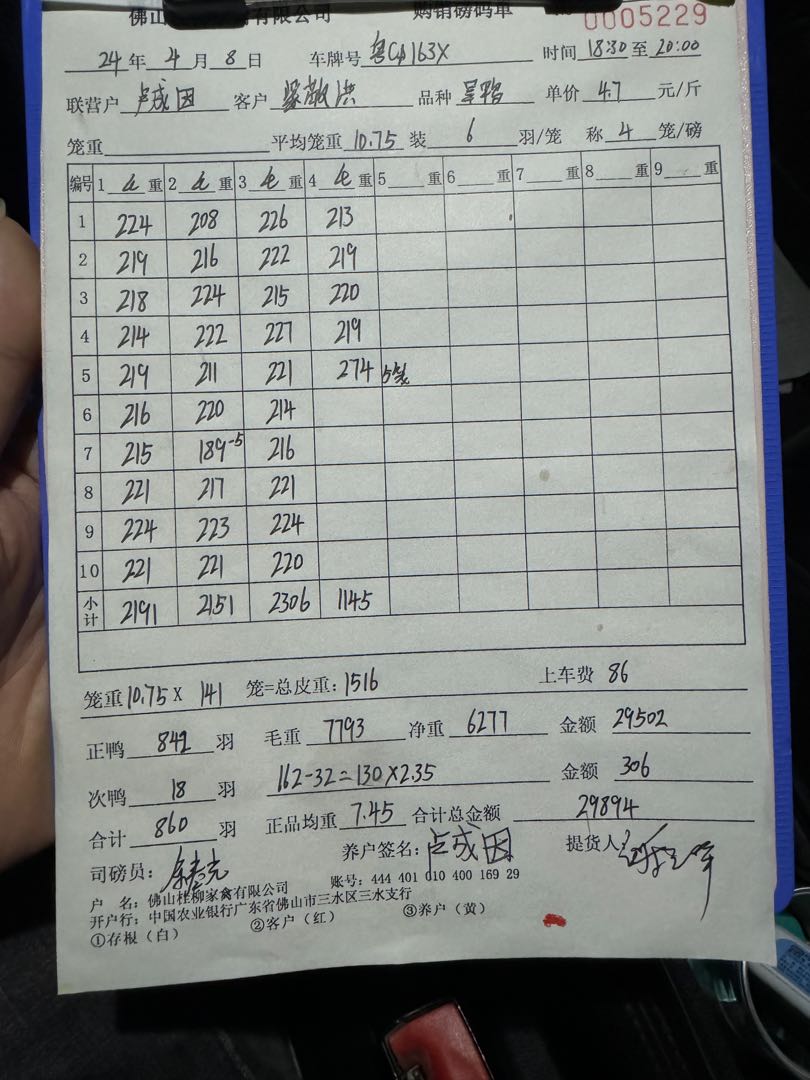 佛山 禽有限公司 购销磅码单 0005229
24 年 4 月 8 日 车牌号 时间 18:30 至 20:00
联营户 卢成因 客户 品种 单价 4.7 元/斤
笼重 平均笼重 10.75 装 6 羽/笼 称 4 笼/磅
编号 1 毛 重 2 毛 重 3 毛 重 4 毛 重 5 重 6 重 7 重 8 重 9 重
1 224 208 226 213
2 219 216 222 219
3 218 224 215 220
4 214 222 227 219
5 219 211 221 274 5笼
6 216 220 214
7 215 189-5 216
8 221 217 221
9 224 223 224
10 221 221 220
小计 2191 2151 2306 1145
笼重 10.75 X 141 笼=总皮重: 1516 上车费 86
正鸭 842 羽 毛重 7793 净重 6277 金额 29502
次鸭 18 羽 162-32=130×2.35 金额 306
合计 860 羽 正品均重 7.45 合计总金额 29894
司磅员: 养户签名: 卢成因 提货人:
户 名: 佛山杜柳家禽有限公司 账号: 444 401 010 400 169 29
开户行: 中国农业银行广东省佛山市三水区三水支行
①存根（白） ②客户（红） ③养户（黄）